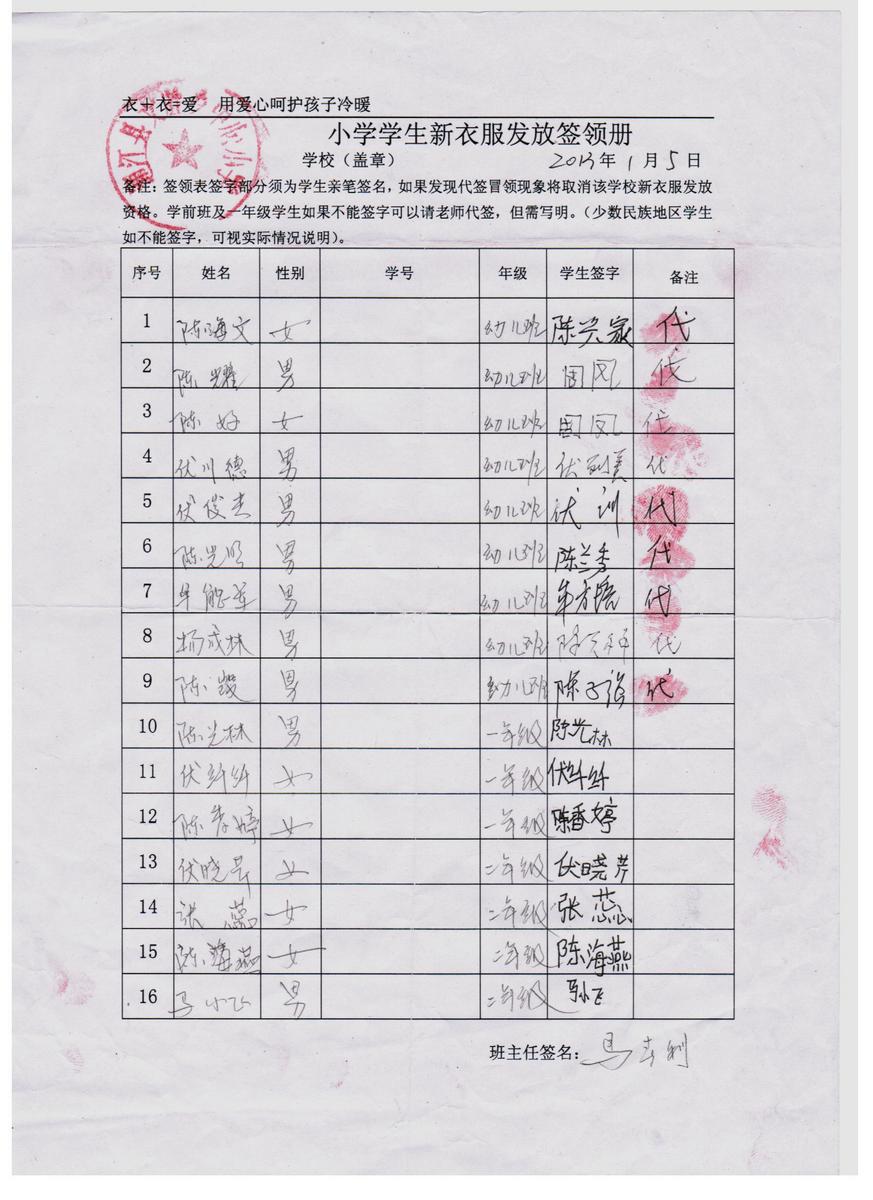 衣+衣=爱 用爱心呵护孩子冷暖
小学学生新衣服发放签领册
学校（盖章） 2013年1月5日
备注：签领表签字部分须为学生亲笔签名，如果发现代签冒领现象将取消该学校新衣服发放
资格。学前班及一年级学生如果不能签字可以请老师代签，但需写明。（少数民族地区学生
如不能签字，可视实际情况说明）。
序号 姓名 性别 学号 年级 学生签字 备注
1 陈海文 女 幼儿班 陈兴家 代
2 陈耀 男 幼儿班 国凤 代
3 陈好 女 幼儿班 国凤 代
4 伏川德 男 幼儿班 代
5 伏俊杰 男 幼儿班 伏训 代
6 陈光明 男 幼儿班 陈兰香 代
7 男 幼儿班 代
8 杨成林 男 幼儿班 代
9 陈毅 男 幼儿班 陈子强 代
10 陈光林 男 一年级 陈光林
11 伏纤纤 女 一年级 伏纤纤
12 陈香婷 女 一年级 陈香婷
13 伏晓芹 女 二年级 伏晓芹
14 张蕊 女 二年级 张蕊
15 陈海燕 女 二年级 陈海燕
16 马小飞 男 二年级 马小飞
班主任签名：